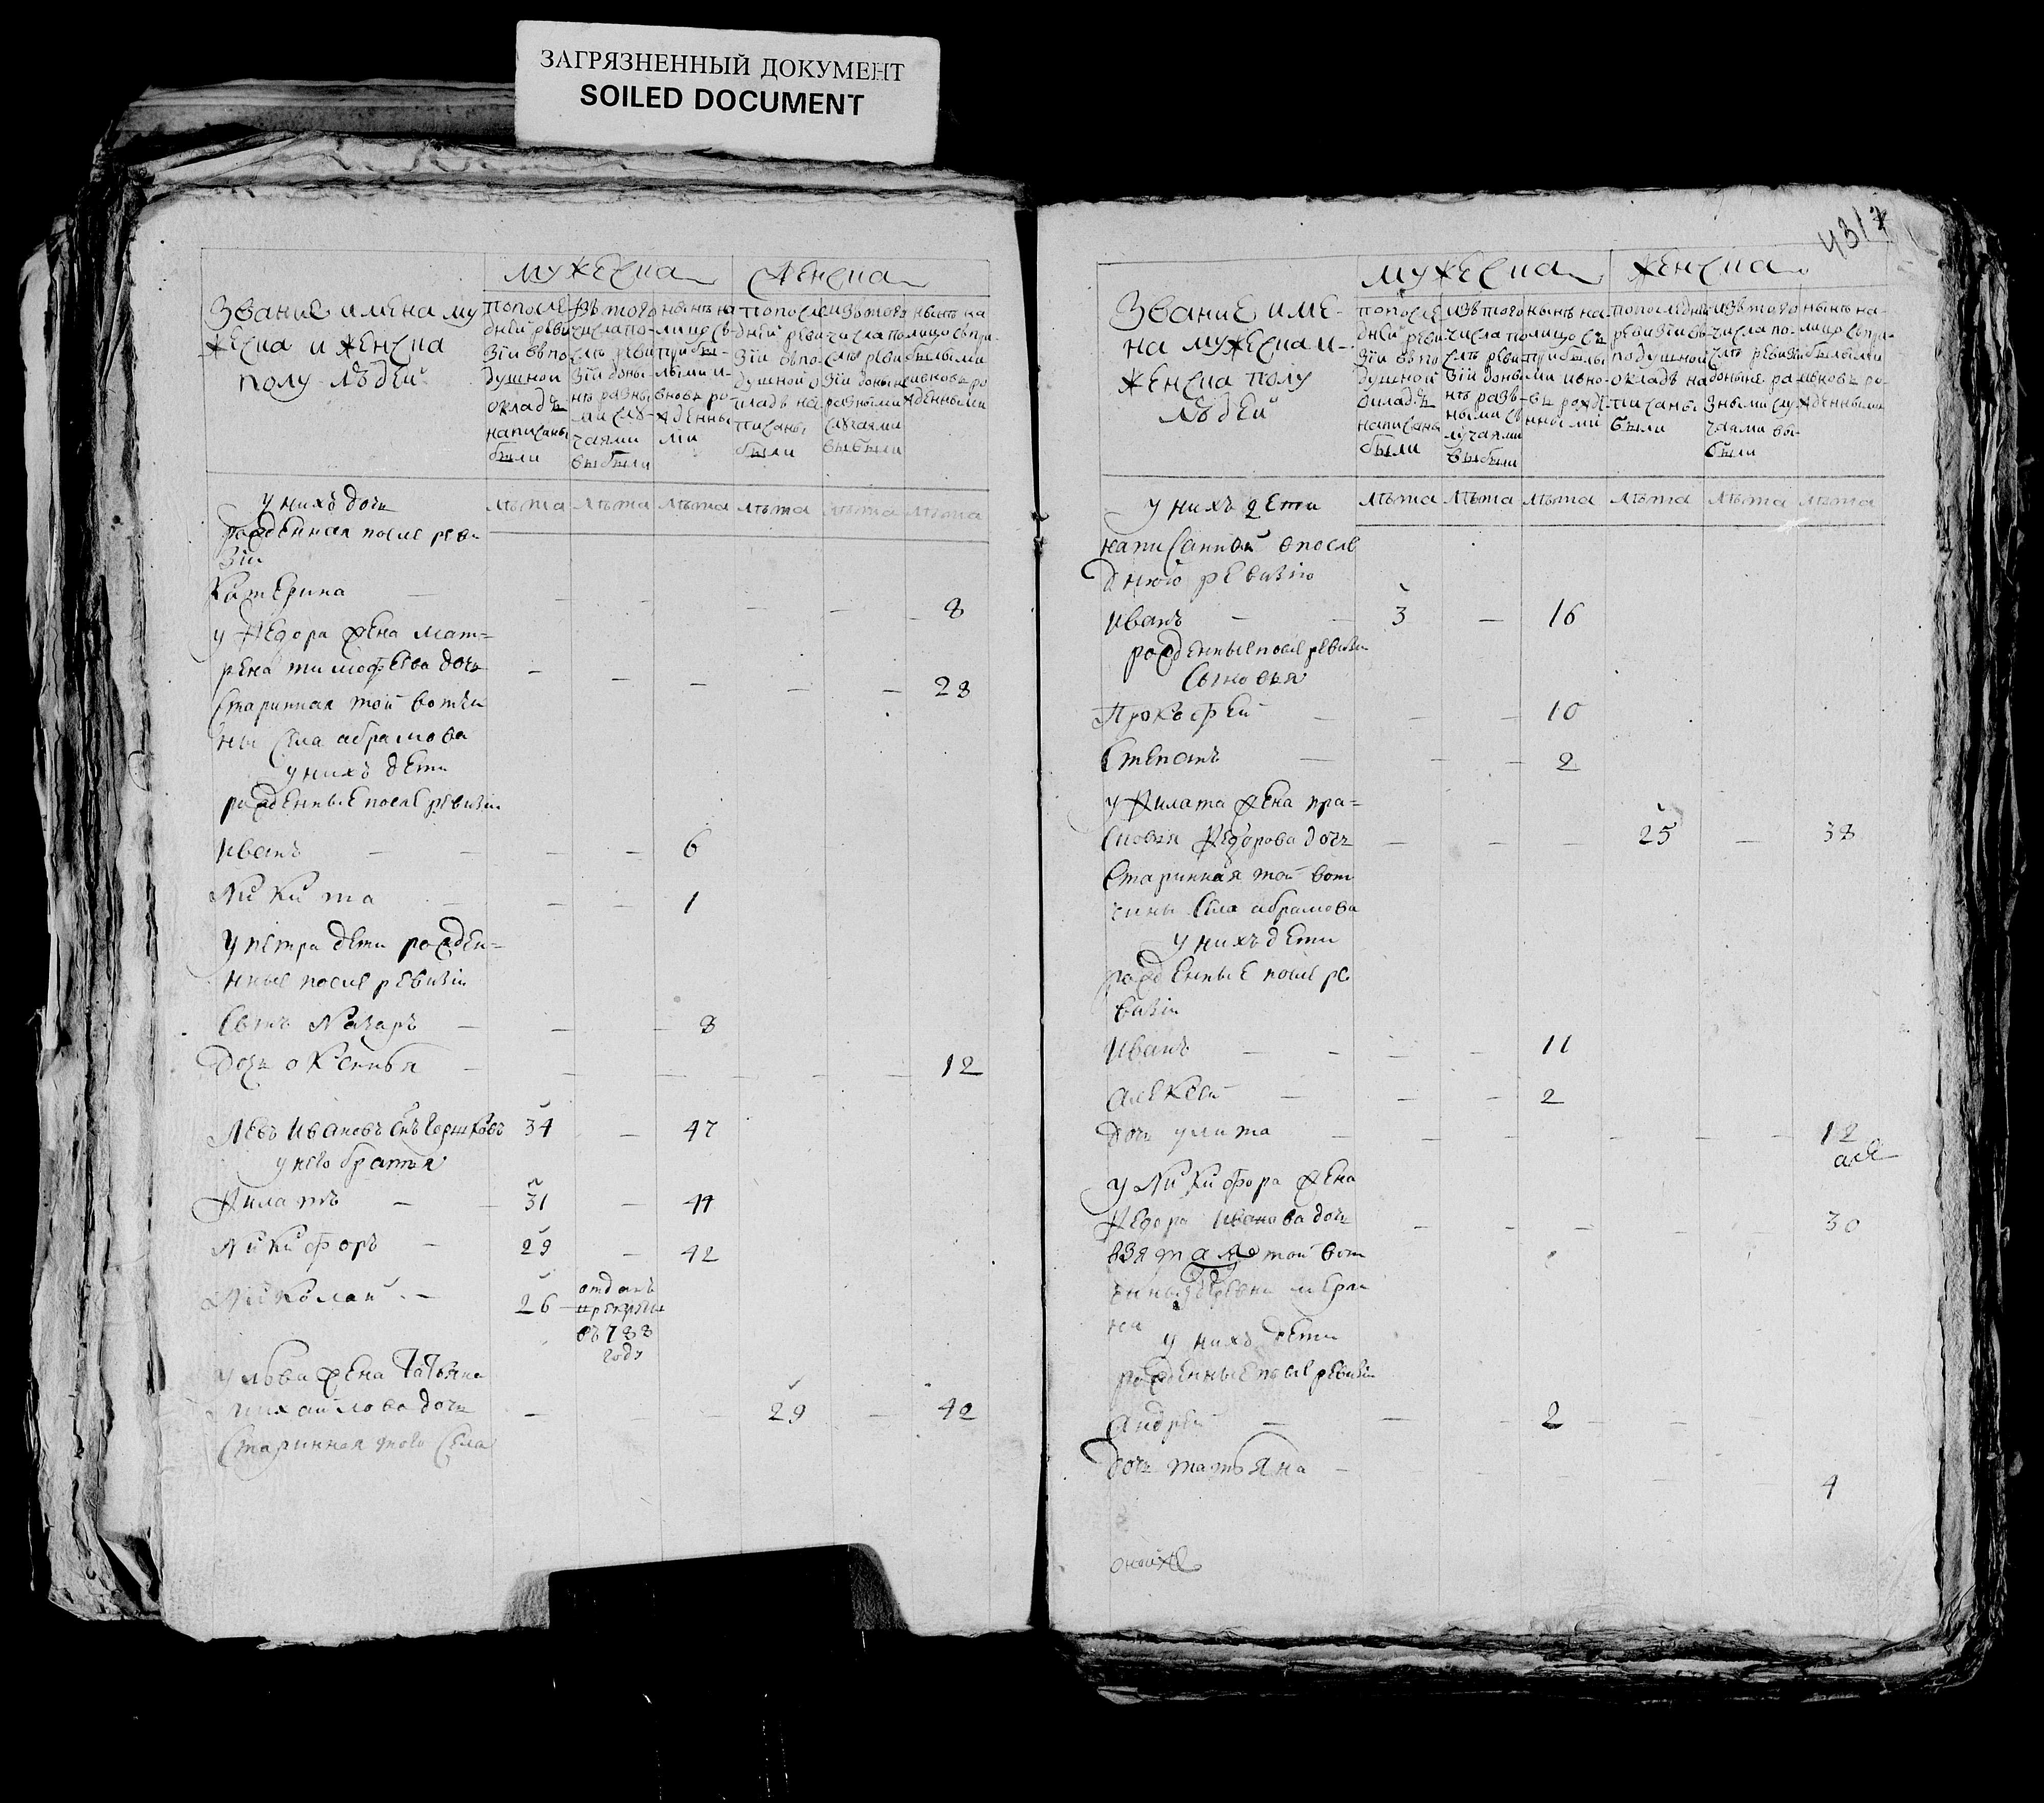 ЗАГРЯЗНЕННЫЙ ДОКУМЕНТ
SOILED DOCUMENT
мужеска
женска
Звание имена му
жеска и женска
полу людей
попосле
дней реви
зіи впо
душной
окладъ
написаны
были
изъ того
числа по-
слѣ реви
зіи доны
нѣ разны
ми слу-
чаями
выбыли
нынѣ на
лицо съ
прибы-
лыми и
вновь ро
жденны
ми
попосле
дней реви
зіи впо
душной о
кладъ на
писаны
были
изъ того
числа по
слѣ реви
зіи донынѣ
разными
случаями
выбыли
нынѣ на
лицо спри
былыми
ивновь ро
жденными
лѣта лѣта лѣта лѣта лѣта лѣта
у нихъ дочь
рожденная после реви
зіи
Катерина 8
у Федора жена мат=
рена тимофеева дочь 28
старинная той вотчи
ны села абрамова
у нихъ дети
рожденные после ревизіи
иванъ 6
Никита 1
у петра дети рожден=
ные после ревизіи
сынъ Назаръ 8
дочь оксинья 12
Левъ ивановъ снъ 34 47
у него братья
Филатъ 31 44
Никифоръ 29 42
Николай 26 отданъ
въ 788
году
у льва жена Татьяна
михайлова дочь 29 42
старинная того села
4317
мужеска
женска
Звание име-
на мужеска и-
женска полу
людей
попосле
дней реви
зіи впо
душной
окладъ
написаны
были
изъ того
числа по
слѣ реви
зіи доны
нѣ раз-
ными с
лучаями
выбыли
нынѣ на
лицо съ
прибылы
ми ивно-
вь рожде
нными
попоследней
ревизіи въ
подушной
окладъ на
писаны
были
изъ того
числа по-
слѣ ревизіи
доныне ра
зными слу
чаями вы-
были
нынѣ на-
лицо спри-
былыми
ивновь ро-
жденными
лѣта лѣта лѣта лѣта лѣта лѣта
у нихъ дети
написанной впослѣ
днюю ревизію
иванъ 3 16
рожденные после ревизіи
сыновья
Прокофей 10
Степанъ 2
у Филата жена пра=
сковья Федорова дочь 25 38
старинная той вот
чины села абрамова
у нихъ дети
рожденные после ре
визіи
Иванъ 11
алексей 2
дочь улита 12
у Никифора жена
Федора Иванова дочь 30
взятая той вот
чины деревни
на
у нихъ дети
рожденные после ревизіи
андрей 2
дочь татьяна 4
оной же